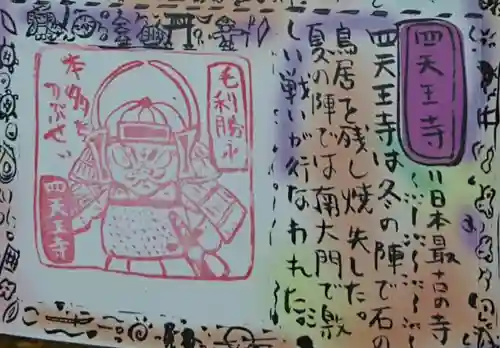 四天王寺
=日本最古の寺
四天王寺は冬の陣で石の
鳥居を残し焼失した。
夏の陣では南大門で激
しい戦いが行なわれた。
毛利勝永
本多を
つぶせ!!
四天王寺